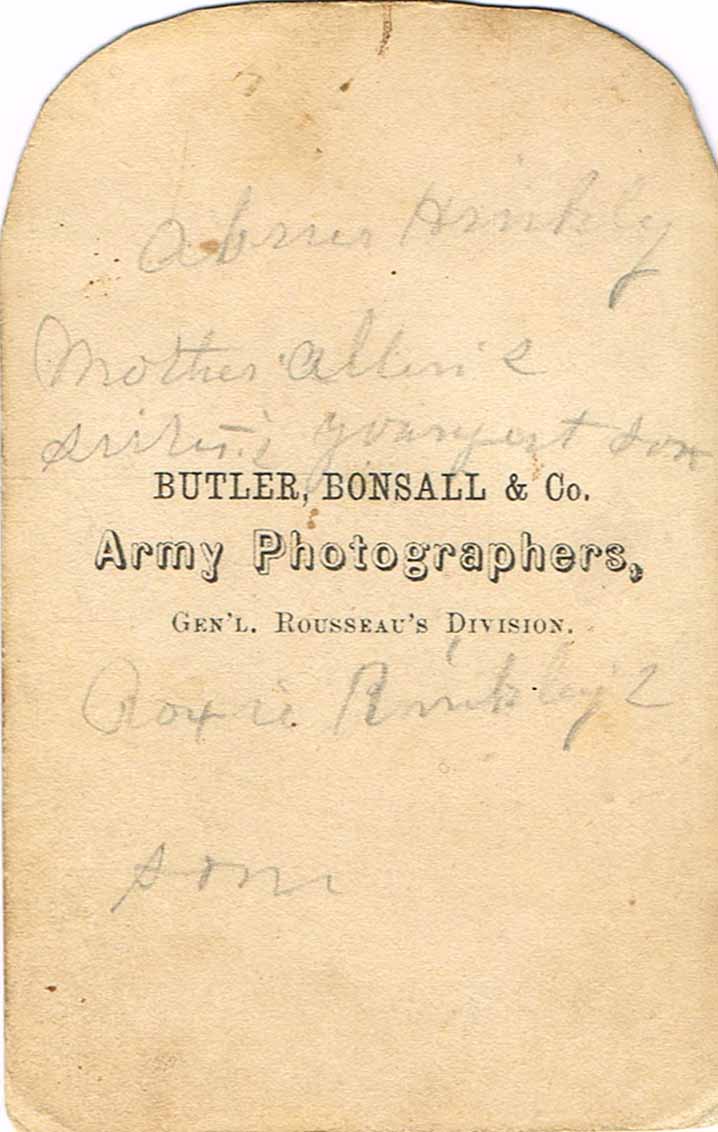 Abner Hinkly
Mother Allen's
sister's youngest son
BUTLER, BONSALL & Co.
Army Photographers,
GEN'L. ROUSSEAU'S DIVISION.
Roxie
son